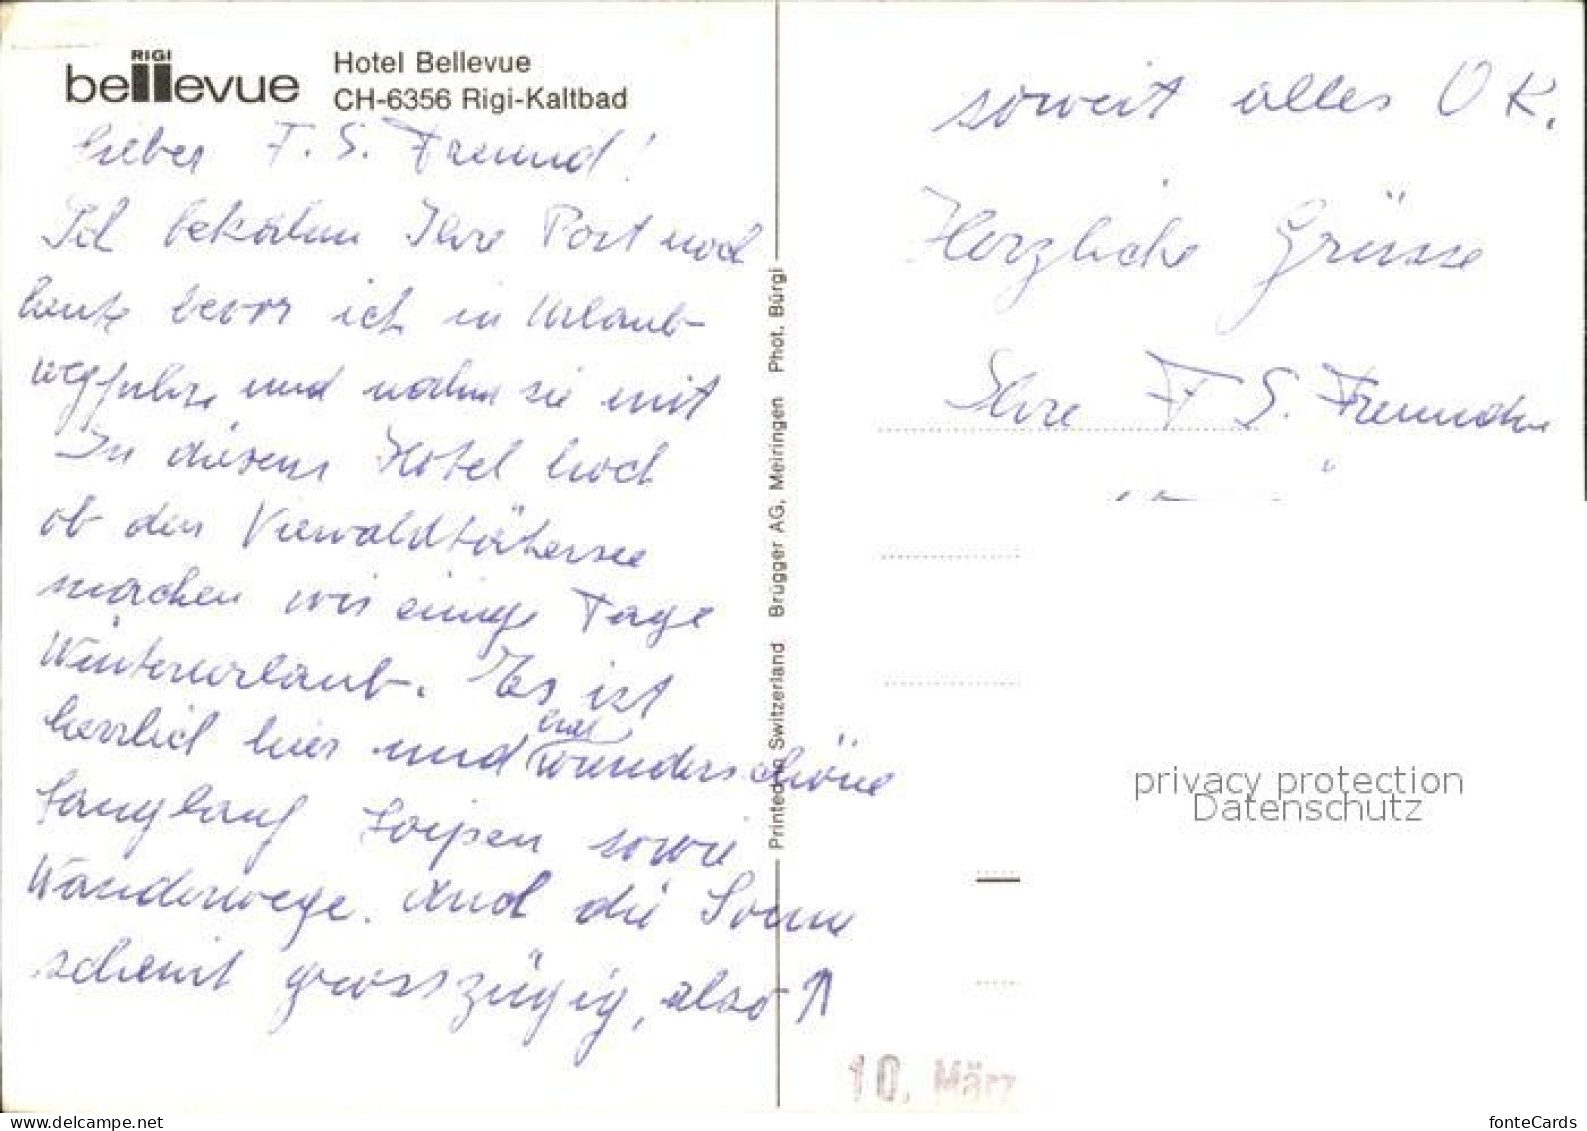 RIGI
bellevue
Hotel Bellevue
CH-6356 Rigi-Kaltbad
Lieber F. S. Freund!
Ich bekam Ihre Post noch
heute bevor ich in Urlaub
wegfuhr, und nahm sie mit
In diesem Hotel hoch
ob den Vierwaldtättersee
machen wir einige Tage
Winterurlaub. Es ist
herrlich hier und hat wunderschöne
Langlauf Loipen sowie
Wanderwege. Auch die Sonne
scheint grosszügig, also ↑
Printed in Switzerland Brügger AG, Meiringen Phot. Bürgi
soweit alles OK.
Herzliche Grüsse
Ihre F. S. Freundin
privacy protection
Datenschutz
10. März
fonteCards